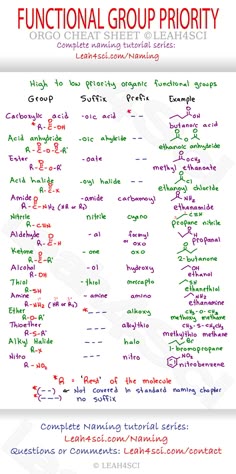 FUNCTIONAL GROUP PRIORITY
ORGO CHEAT SHEET ©LEAH4SCI
Complete naming tutorial series:
Leah4sci.com/Naming
High to low priority organic functional groups
Group Suffix Prefix Example
Carboxylic acid -oic acid * --- OH
R-C-OH butanoic acid
Acid anhydride
R-C-O-R' ethanoic anhydride
Ester -oate * ---
R-C-O-R' methyl ethanoate
Acid halide -oyl halide * ---
R-C-X ethanoyl chloride
Amide -amide carbamoyl NH2
R-C-NH2 (HR or R2) ethanamide
Nitrile -nitrile cyano
R-C≡N propane nitrile
Aldehyde -al formyl
R-C-H oxo propanal
Ketone -one oxo
R-C-R' 2-butanone
Alcohol -ol hydroxy OH
R-OH ethanol
Thiol -thiol mercapto SH
R-SH ethanethiol
Amine -amine amino NH2
R-NH2 (HR or R2) ethanamine
Ether * --- alkoxy CH3-O-CH3
R-O-R' methoxy methane
Thioether --- alkylthio CH3-S-CH3
R-S-R' methylthio methane
Alkyl Halide --- halo Br
R-X 1-bromopropane
Nitro --- nitro NO2
R-NO2 nitrobenzene
*R = 'Rest' of the molecule
*(---) Not covered in standard naming chapter
(---) no suffix
Complete Naming tutorial series:
Leah4sci.com/Naming
Questions or Comments: Leah4sci.com/contact
© LEAH4SCI